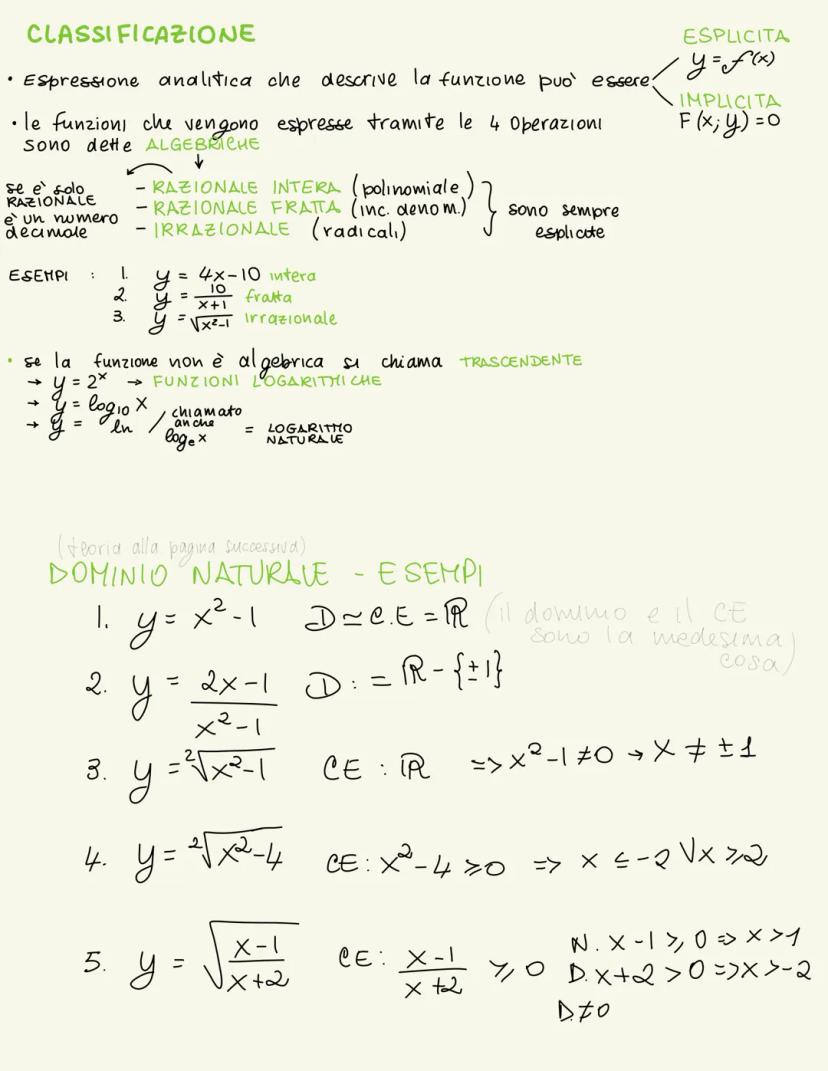 CLASSIFICAZIONE
ESPLICITA
• Espressione analitica che descrive la funzione può essere
y = f(x)
IMPLICITA
F(x; y) = 0
• le funzioni che vengono espresse tramite le 4 operazioni
sono dette ALGEBRICHE
se è solo
RAZIONALE
è un numero
decimale
- RAZIONALE INTERA (polinomiale)
- RAZIONALE FRATTA (inc. denom.)
- IRRAZIONALE (radicali)
sono sempre
esplicite
ESEMPI : 1. y = 4x-10 intera
2. y = 10/(x+1) fratta
3. y = √(x²-1) irrazionale
• se la funzione non è algebrica si chiama TRASCENDENTE
→ y = 2ˣ → FUNZIONI LOGARITMICHE
→ y = log₁₀ x
→ y = ln / chiamato anche logₑx = LOGARITMO NATURALE
(teoria alla pagina successiva)
DOMINIO NATURALE - ESEMPI
1. y = x² - 1 D ≃ C.E = ℝ (il dominio e il CE
sono la medesima
cosa)
2. y = (2x-1)/(x²-1) D: = ℝ - {±1}
3. y = ²√(x²-1) CE : ℝ => x²-1 ≠ 0 → x ≠ ±1
4. y = ²√(x²-4) CE: x²-4 ⩾ 0 => x ≤ -2 V x ⩾ 2
5. y = √((x-1)/(x+2)) CE: (x-1)/(x+2) ⩾ 0
N. x-1 ⩾ 0 => x > 1
D. x+2 > 0 => x > -2
D ≠ 0